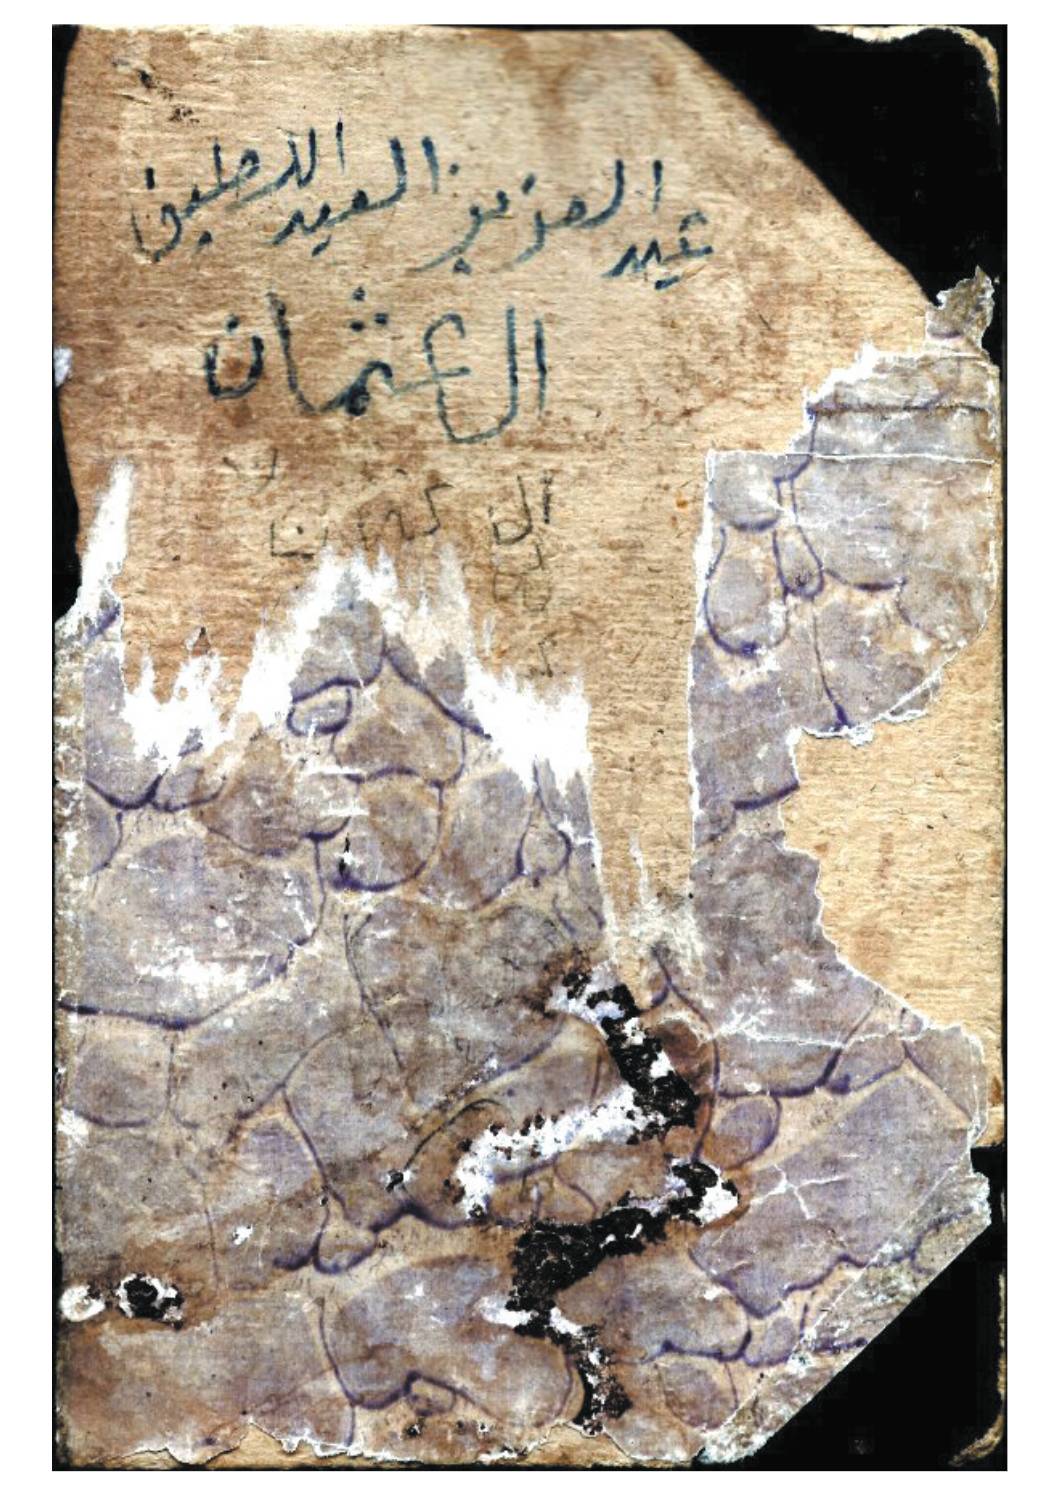 عبد العزيز العبد اللطيف
ال عثمان
ال